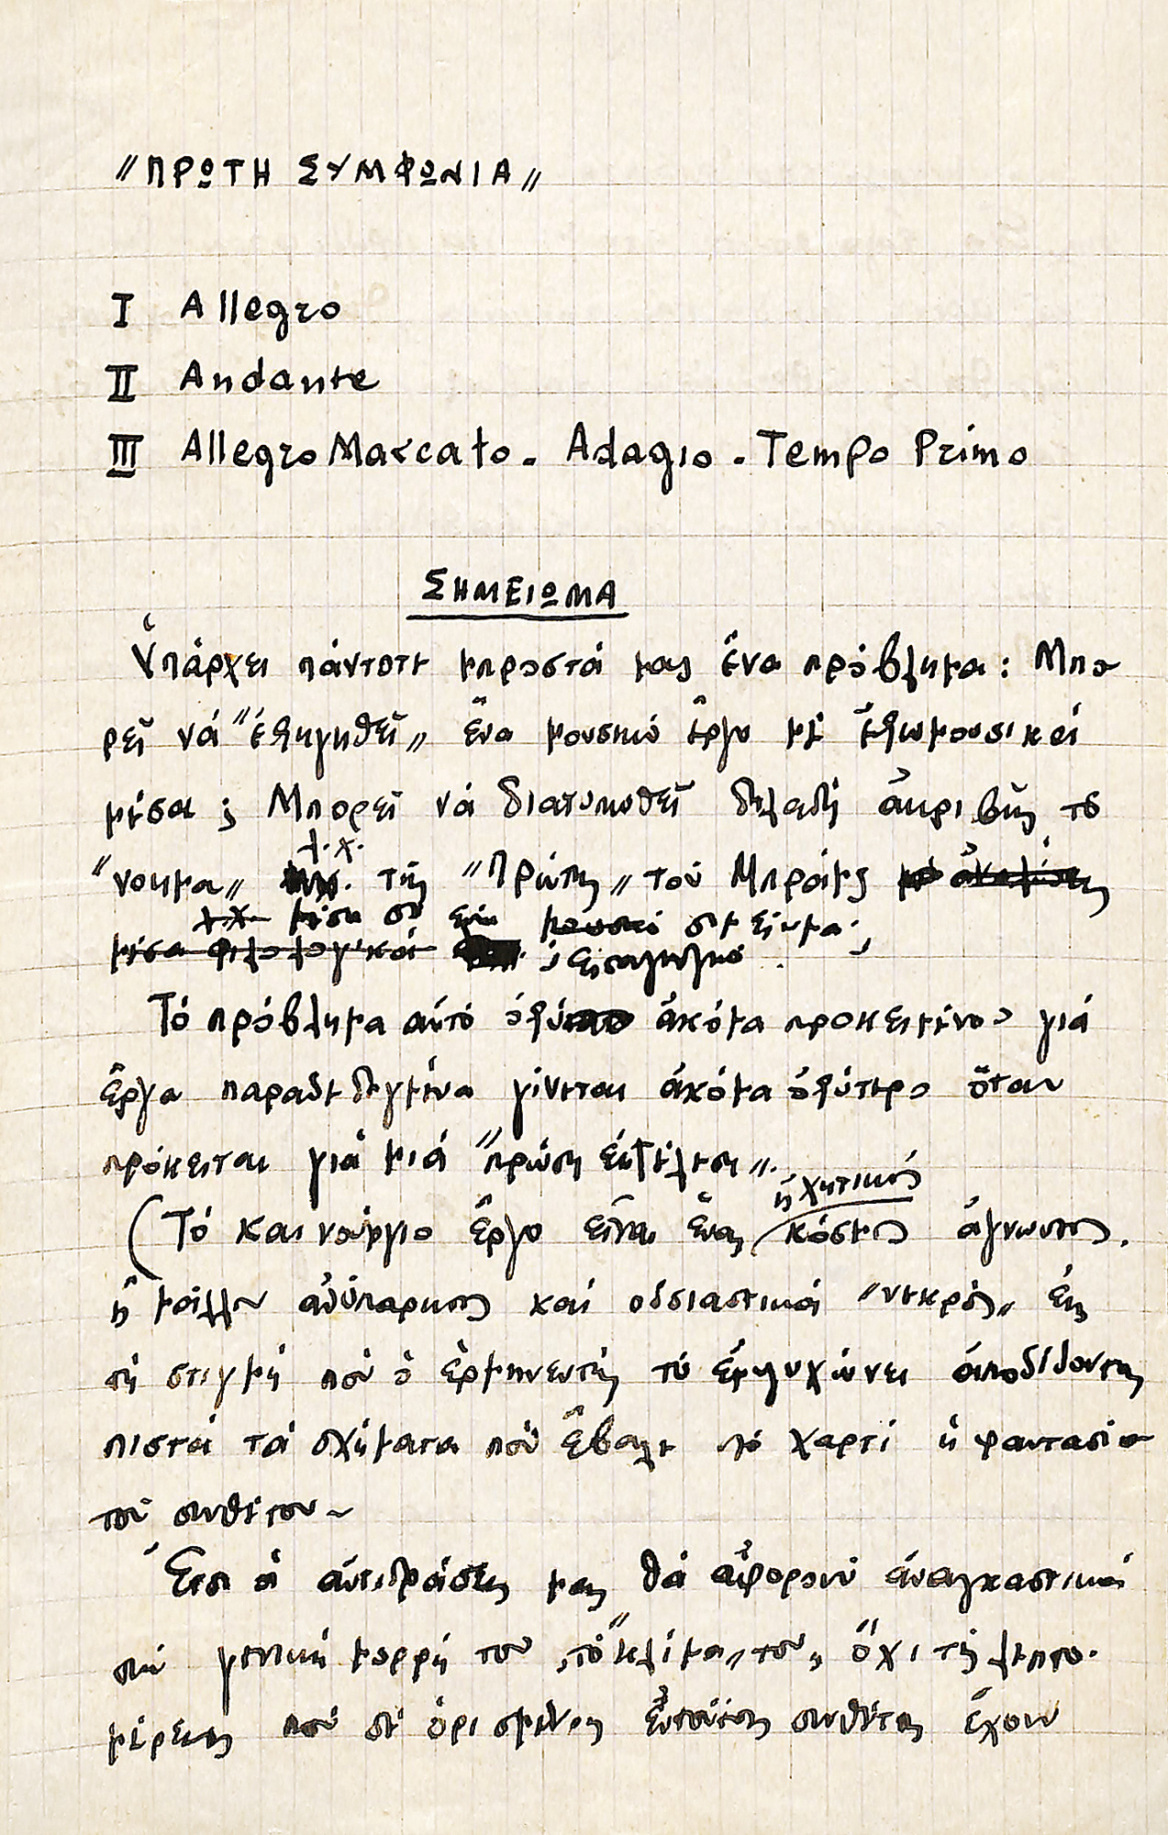 "ΠΡΩΤΗ ΣΥΜΦΩΝΙΑ„
I Allegro
II Andante
III Allegro Marcato. Adagio. Tempo Primo
ΣΗΜΕΙΩΜΑ
Ὑπάρχει πάντοτε μπροστά μας ἕνα πρόβλημα: Μπο
ρεῖ νά "ἐξηγηθεῖ„ ἕνα μουσικό ἔργο μέ ἐξωμουσικά
μέσα; Μπορεῖ νά διατυπωθεῖ δηλαδή ἀκριβῶς τό
λ.χ.
"νοημα„ τῆς "Πρώτης„ τοῦ Μπράμς
λ.χ. μέσα σέ ἕνα μουσικό σημείωμα;
μέσα φιλολογικά ; εἰσαγωγικό
Τό πρόβλημα αὐτό ὀξύ ἀκόμα προκειμένου γιά
ἔργα παραδεδεγμένα γίνεται ἀκόμα ὀξύτερο ὅταν
πρόκειται γιά μιά "πρώτη ἐκτέλεση„.
ἠχητικός
(Τό καινούργιο ἔργο εἶναι ἕνας κόσμος ἄγνωστος.
ἤ μᾶλλον ἀνύπαρκτος καί οὐσιαστικά "νεκρός„ ἕως
τή στιγμή πού ὁ ἑρμηνευτής τό ἐμψυχώνει ἀποδίδοντας
πιστά τά σχήματα πού ἔβαλε στό χαρτί ἡ φαντασία
τοῦ συνθέτου~
Ἔτσι οἱ ἀντιδράσεις μας θά ἀφοροῦν ἀναγκαστικά
στή γενική μορφή του, τό "κλίμα„ του, ὄχι τίς λεπτο-
μέρειες πού σέ ὁρισμένους συνθέτες ἔχουν